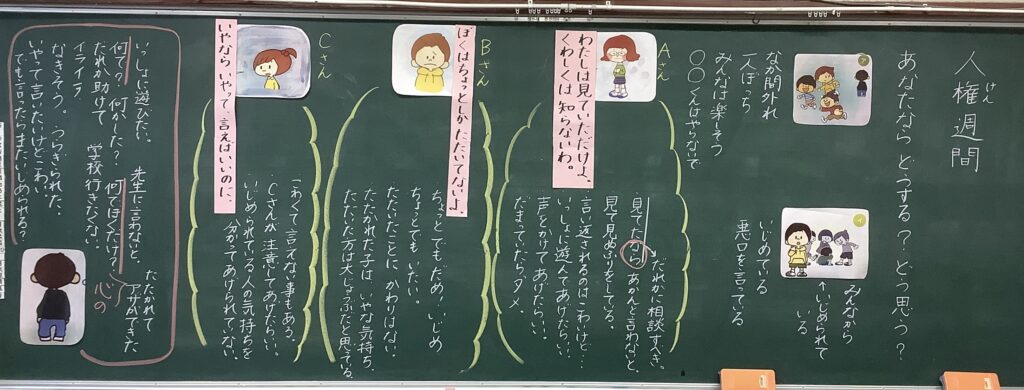 人権週間
けん
あなたなら どうする？どう思う？
ア
なか間外れ
一人ぼっち
みんなは楽しそう
〇〇くんはやらないで
イ
みんなから
いじめられて
いる
いじめている
悪口を言っている
Aさん
わたしは見ていただけよ。
くわしくは 知らないわ。
だれかに相談すべき。
・見てたなら あかんと言わないと。
見て見ぬふりをしている。
言い返されるのはこわいけど…
いっしょに遊んであげたらいい。
声とかけてあげたらいい。
だまっていたらダメ。
Bさん
ぼくはちょっとしかたたいてないよ。
ちょっとでもだめ！いじめ
ちょっとでもいたい。
たたいたことに、かわりはない。
たたかれた子は いやな気持ち。
たたいた方は大じょうぶだと思っている。
Cさん
いやなら いやって、言えばいいのに。
こわくて言えない事もある。
・Cさんが注意してあげたらいい。
いじめられている人の気持ちを
分かってあげられていない。
いっしょに遊びたい。
先生に言わないと。
たたかれて
アザができた
心の
何で？ 何かした？ 何でぼくだけ
だれか助けて 学校行きたくない
イライラ
なきそう。 うらぎられた。
いやって言いたいけどこわい。
でも言ったらまたいじめられる？